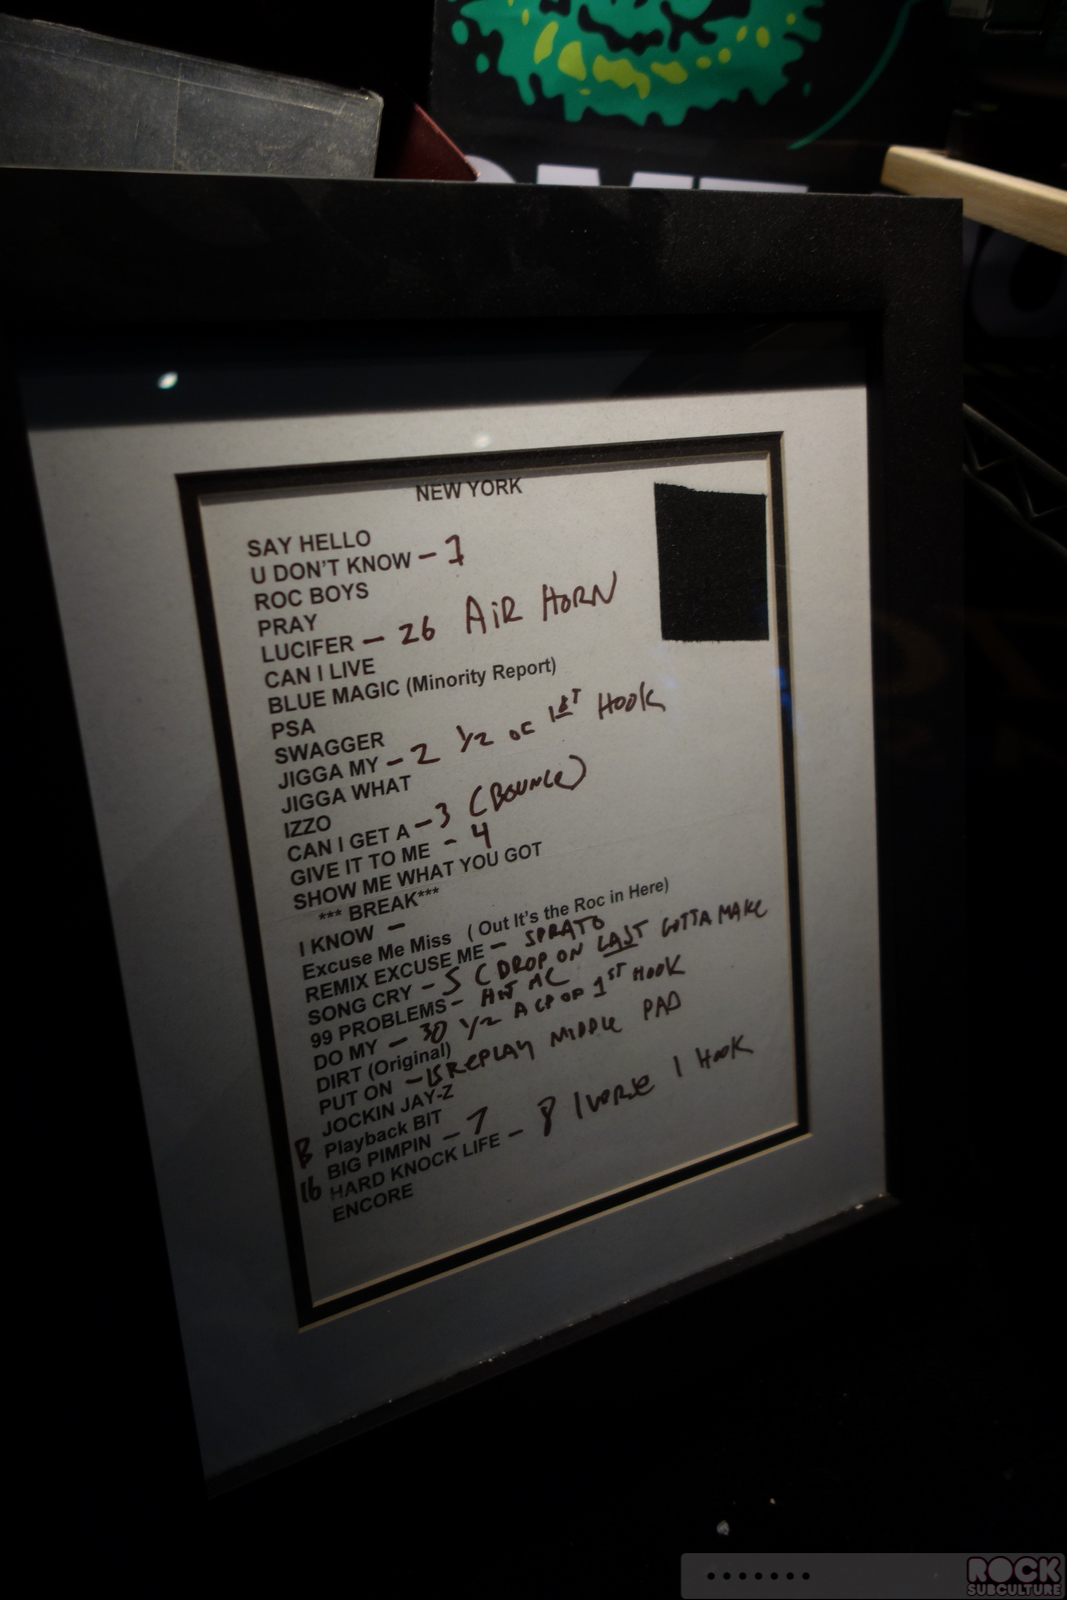 NEW YORK
SAY HELLO
U DON'T KNOW – 1
ROC BOYS
PRAY
LUCIFER – 26 AIR HORN
CAN I LIVE
BLUE MAGIC (Minority Report)
PSA
SWAGGER
JIGGA MY – 2 1/2 OF 1ST HOOK
JIGGA WHAT
IZZO
CAN I GET A – 3 (BOUNCE)
GIVE IT TO ME - 4
SHOW ME WHAT YOU GOT
*** BREAK***
I KNOW –
Excuse Me Miss ( Out It's the Roc in Here)
REMIX EXCUSE ME –
SONG CRY – 5 (DROP ON LAST GOTTA MAKE
99 PROBLEMS –
DO MY – 30 1/2 OF 1ST HOOK
DIRT (Original)
PUT ON – REPLAY MIDDLE PAD
JOCKIN JAY-Z
B Playback BIT
BIG PIMPIN – 7
16 HARD KNOCK LIFE – 8 1 VERSE 1 HOOK
ENCORE
ROCK
SUBCULTURE